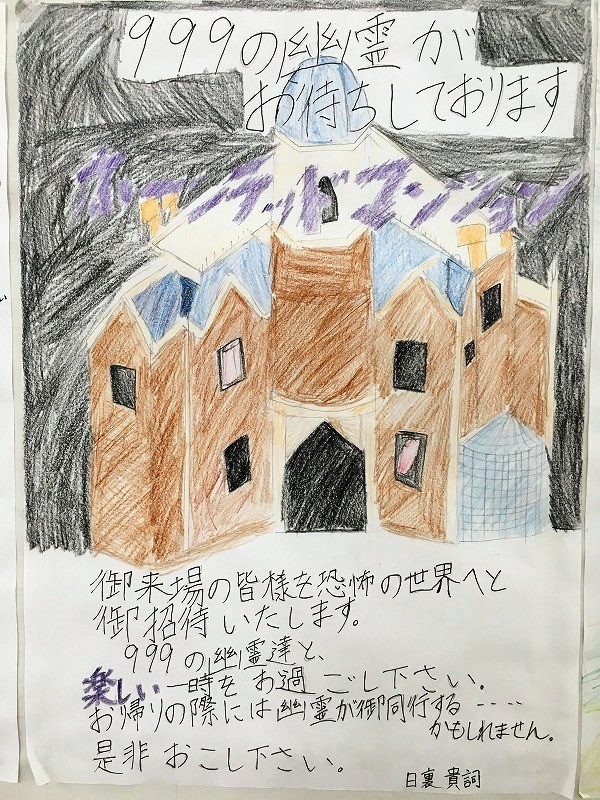 999の幽霊が
お待ちしております
ホーンテッドマンション
御来場の皆様を恐怖の世界へと
御招待いたします。
999の幽霊達と、
楽しい一時をお過ごし下さい。
お帰りの際には幽霊が御同行する‥‥
かもしれません。
是非おこし下さい。
日裏 貴詞